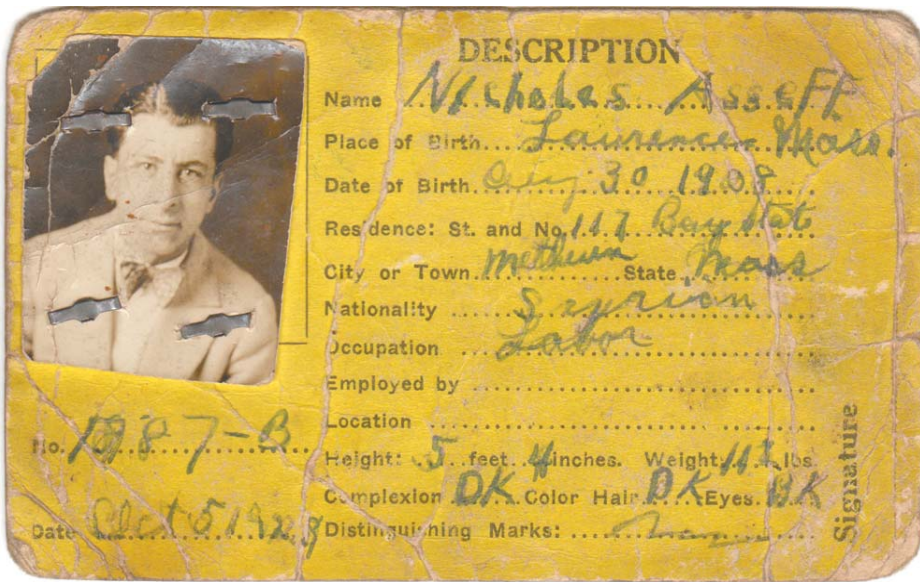 DESCRIPTION
Name Nicholas Asseff
Place of Birth Lawrence Mass.
Date of Birth Aug 30 1908
Residence: St. and No. 117 Bay Stat
City or Town Methuen State Mass
Nationality Seyrian
Occupation Labor
Employed by
Location
Height: 5 feet 4 inches. Weight lbs
Complexion DK Color Hair DK Eyes
Distinguishing Marks:
No. 1987-B
Date Oct 5 192
Signature